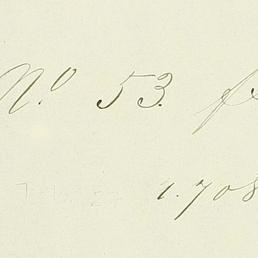 No. 53. f
1.708